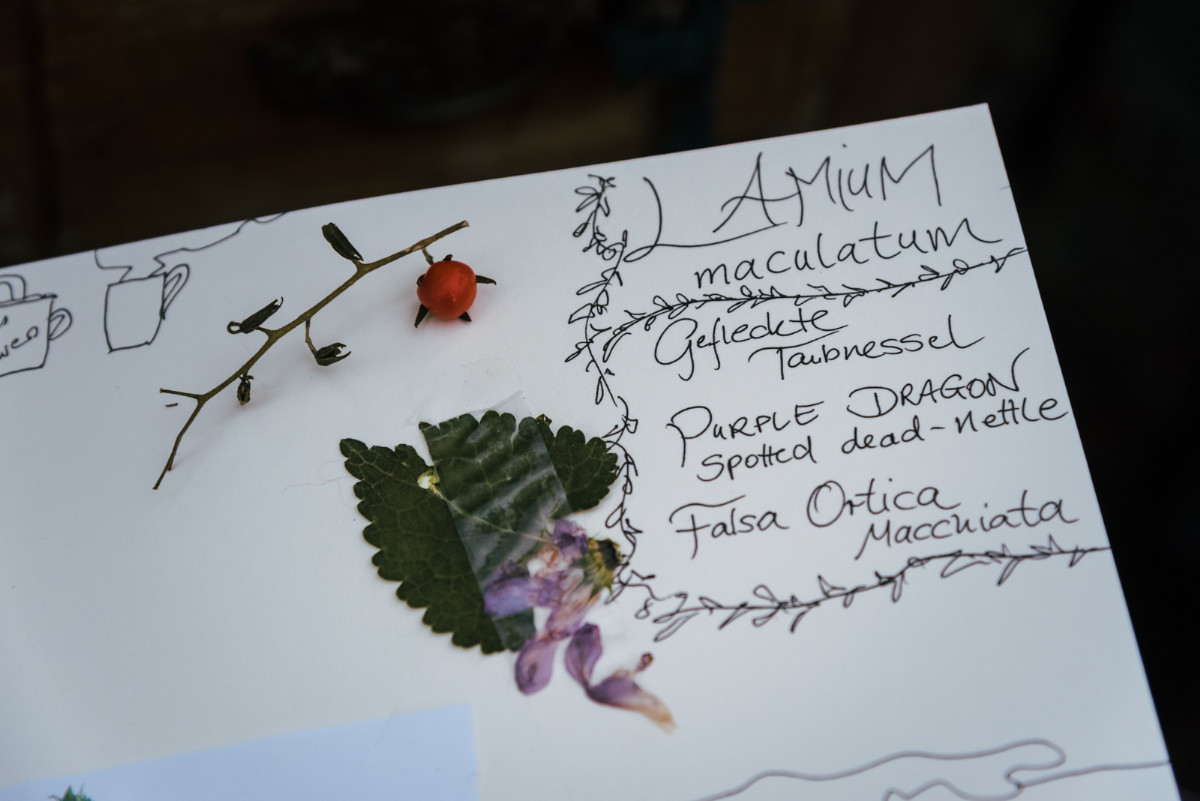 LAMiUM
maculatum
Gefleckte
Taubnessel
PURPLE DRAGON
spotted dead-nettle
Falsa Ortica
Macchiata